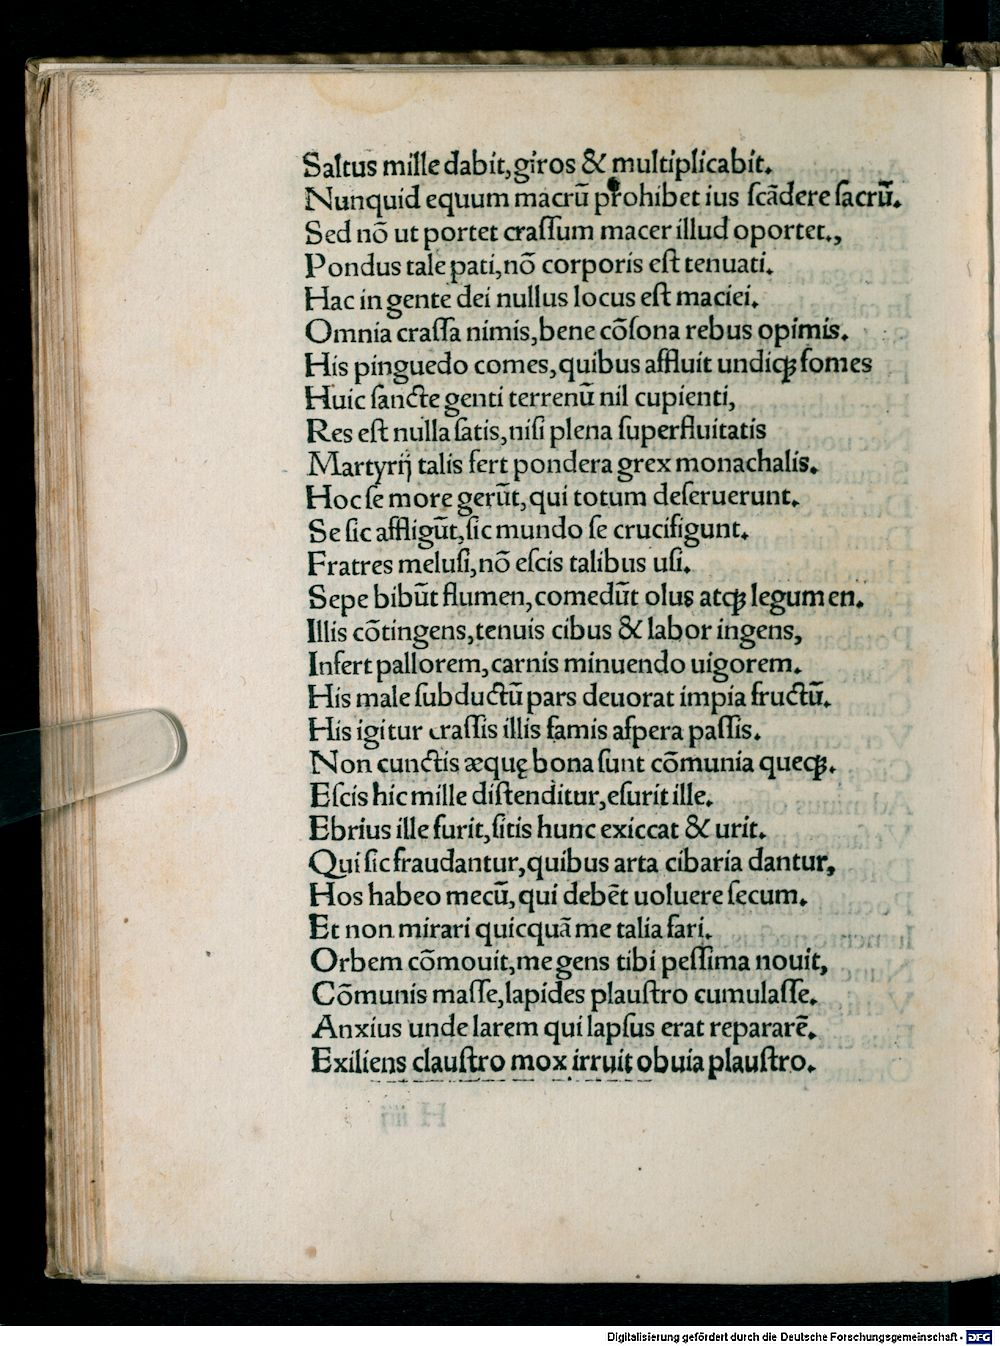 Saltus mille dabit,giros & multiplicabit.
Nunquid equum macrū prohibet ius ſcādere ſacrū.
Sed nō ut portet craſſum macer illud oportet.,
Pondus tale pati,nō corporis eſt tenuati.
Hac in gente dei nullus locus eſt maciei.
Omnia craſſa nimis,bene cōſona rebus opimis.
His pinguedo comes,quibus affluit undiqꝫ fomes
Huic ſancte genti terrenū nil cupienti,
Res eſt nulla ſatis,niſi plena ſuperfluitatis
Martyrij talis fert pondera grex monachalis.
Hoc ſe more gerūt,qui totum deſeruerunt.
Se ſic affligūt,ſic mundo ſe crucifigunt.
Fratres meluſi,nō eſcis talibus uſi.
Sepe bibūt flumen,comedūt olus atqꝫ legumen.
Illis cōtingens,tenuis cibus & labor ingens,
Infert pallorem,carnis minuendo uigorem.
His male ſubductū pars deuorat impia fructū.
His igitur craſſis illis famis aſpera paſſis.
Non cunctis æquę bona ſunt cōmunia queqꝫ.
Eſcis hic mille diſtenditur,eſurit ille.
Ebrius ille furit,ſitis hunc exiccat & urit.
Qui ſic fraudantur,quibus arta cibaria dantur,
Hos habeo mecū,qui debēt uoluere ſecum.
Et non mirari quicquā me talia fari.
Orbem cōmouit,me gens tibi peſſima nouit,
Cōmunis maſſe,lapides plauſtro cumulaſſe.
Anxius unde larem qui lapſus erat repararē.
Exiliens clauſtro mox irruit obuia plauſtro.
Digitalisierung gefördert durch die Deutsche Forschungsgemeinschaft - DFG